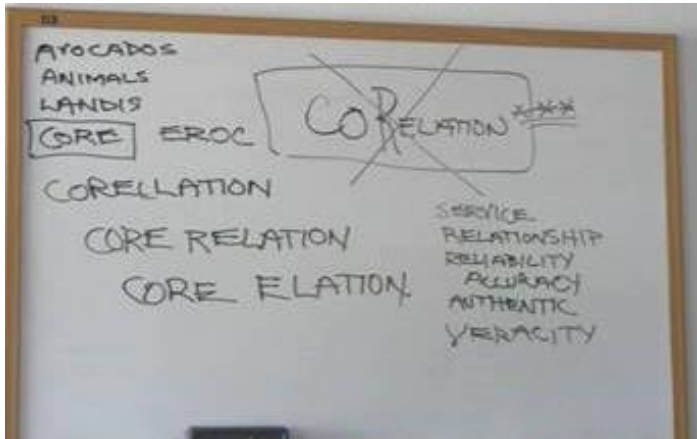 AVOCADOS
ANIMALS
LANDIS
CORE EROC
CORELATION ****
CORELLATION
CORE RELATION
CORE ELATION
SERVICE
RELATIONSHIP
RELIABILITY
ACCURACY
AUTHENTIC
VERACITY